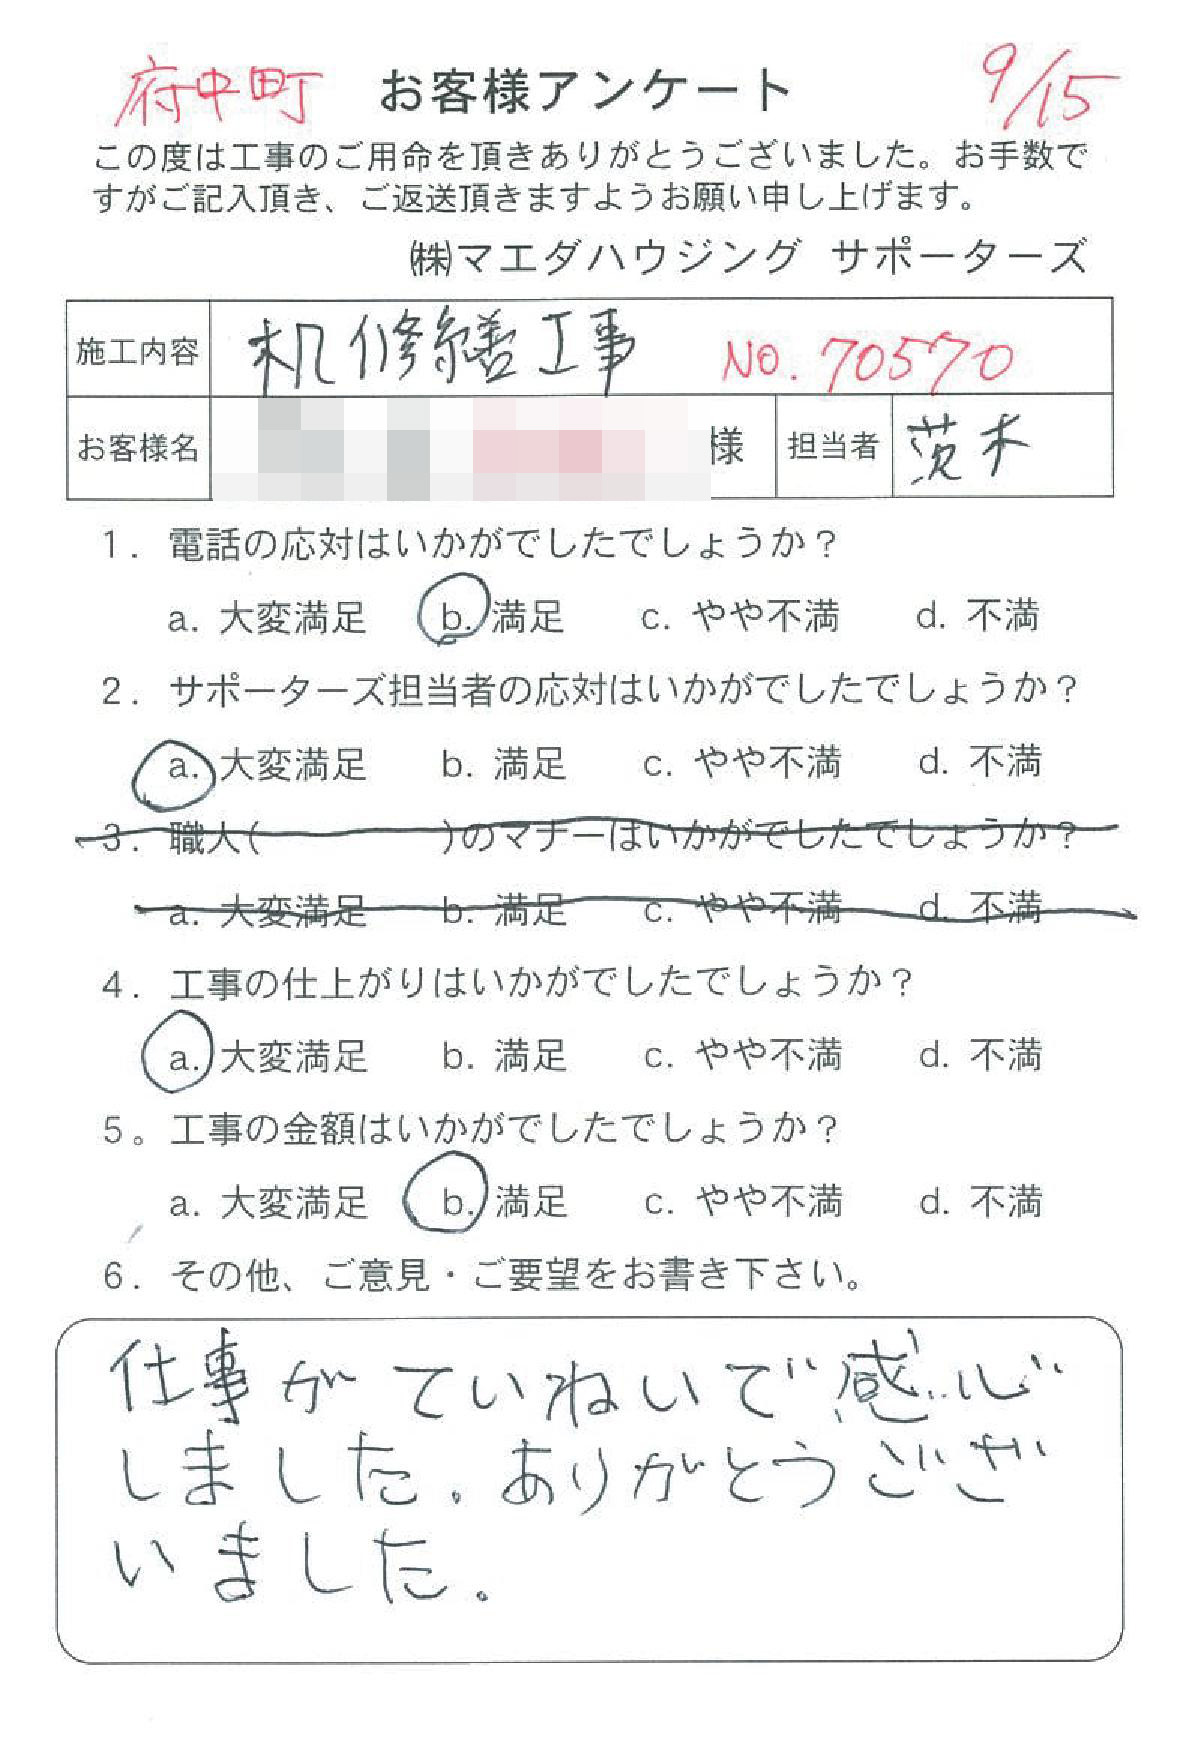 府中町 お客様アンケート 9/15
この度は工事のご用命を頂きありがとうございました。お手数で
すがご記入頂き、ご返送頂きますようお願い申し上げます。
㈱マエダハウジング サポーターズ
施工内容 机修繕工事 NO.70570
お客様名 様 担当者 茨木
1. 電話の応対はいかがでしたでしょうか？
a. 大変満足 b. 満足 c. やや不満 d. 不満
2. サポーターズ担当者の応対はいかがでしたでしょうか？
a. 大変満足 b. 満足 c. やや不満 d. 不満
3. 職人( )のマナーはいかがでしたでしょうか？
a. 大変満足 b. 満足 c. やや不満 d. 不満
4. 工事の仕上がりはいかがでしたでしょうか？
a. 大変満足 b. 満足 c. やや不満 d. 不満
5。工事の金額はいかがでしたでしょうか？
a. 大変満足 b. 満足 c. やや不満 d. 不満
6. その他、ご意見・ご要望をお書き下さい。
仕事がていねいで感心
しました。ありがとうござ
いました。